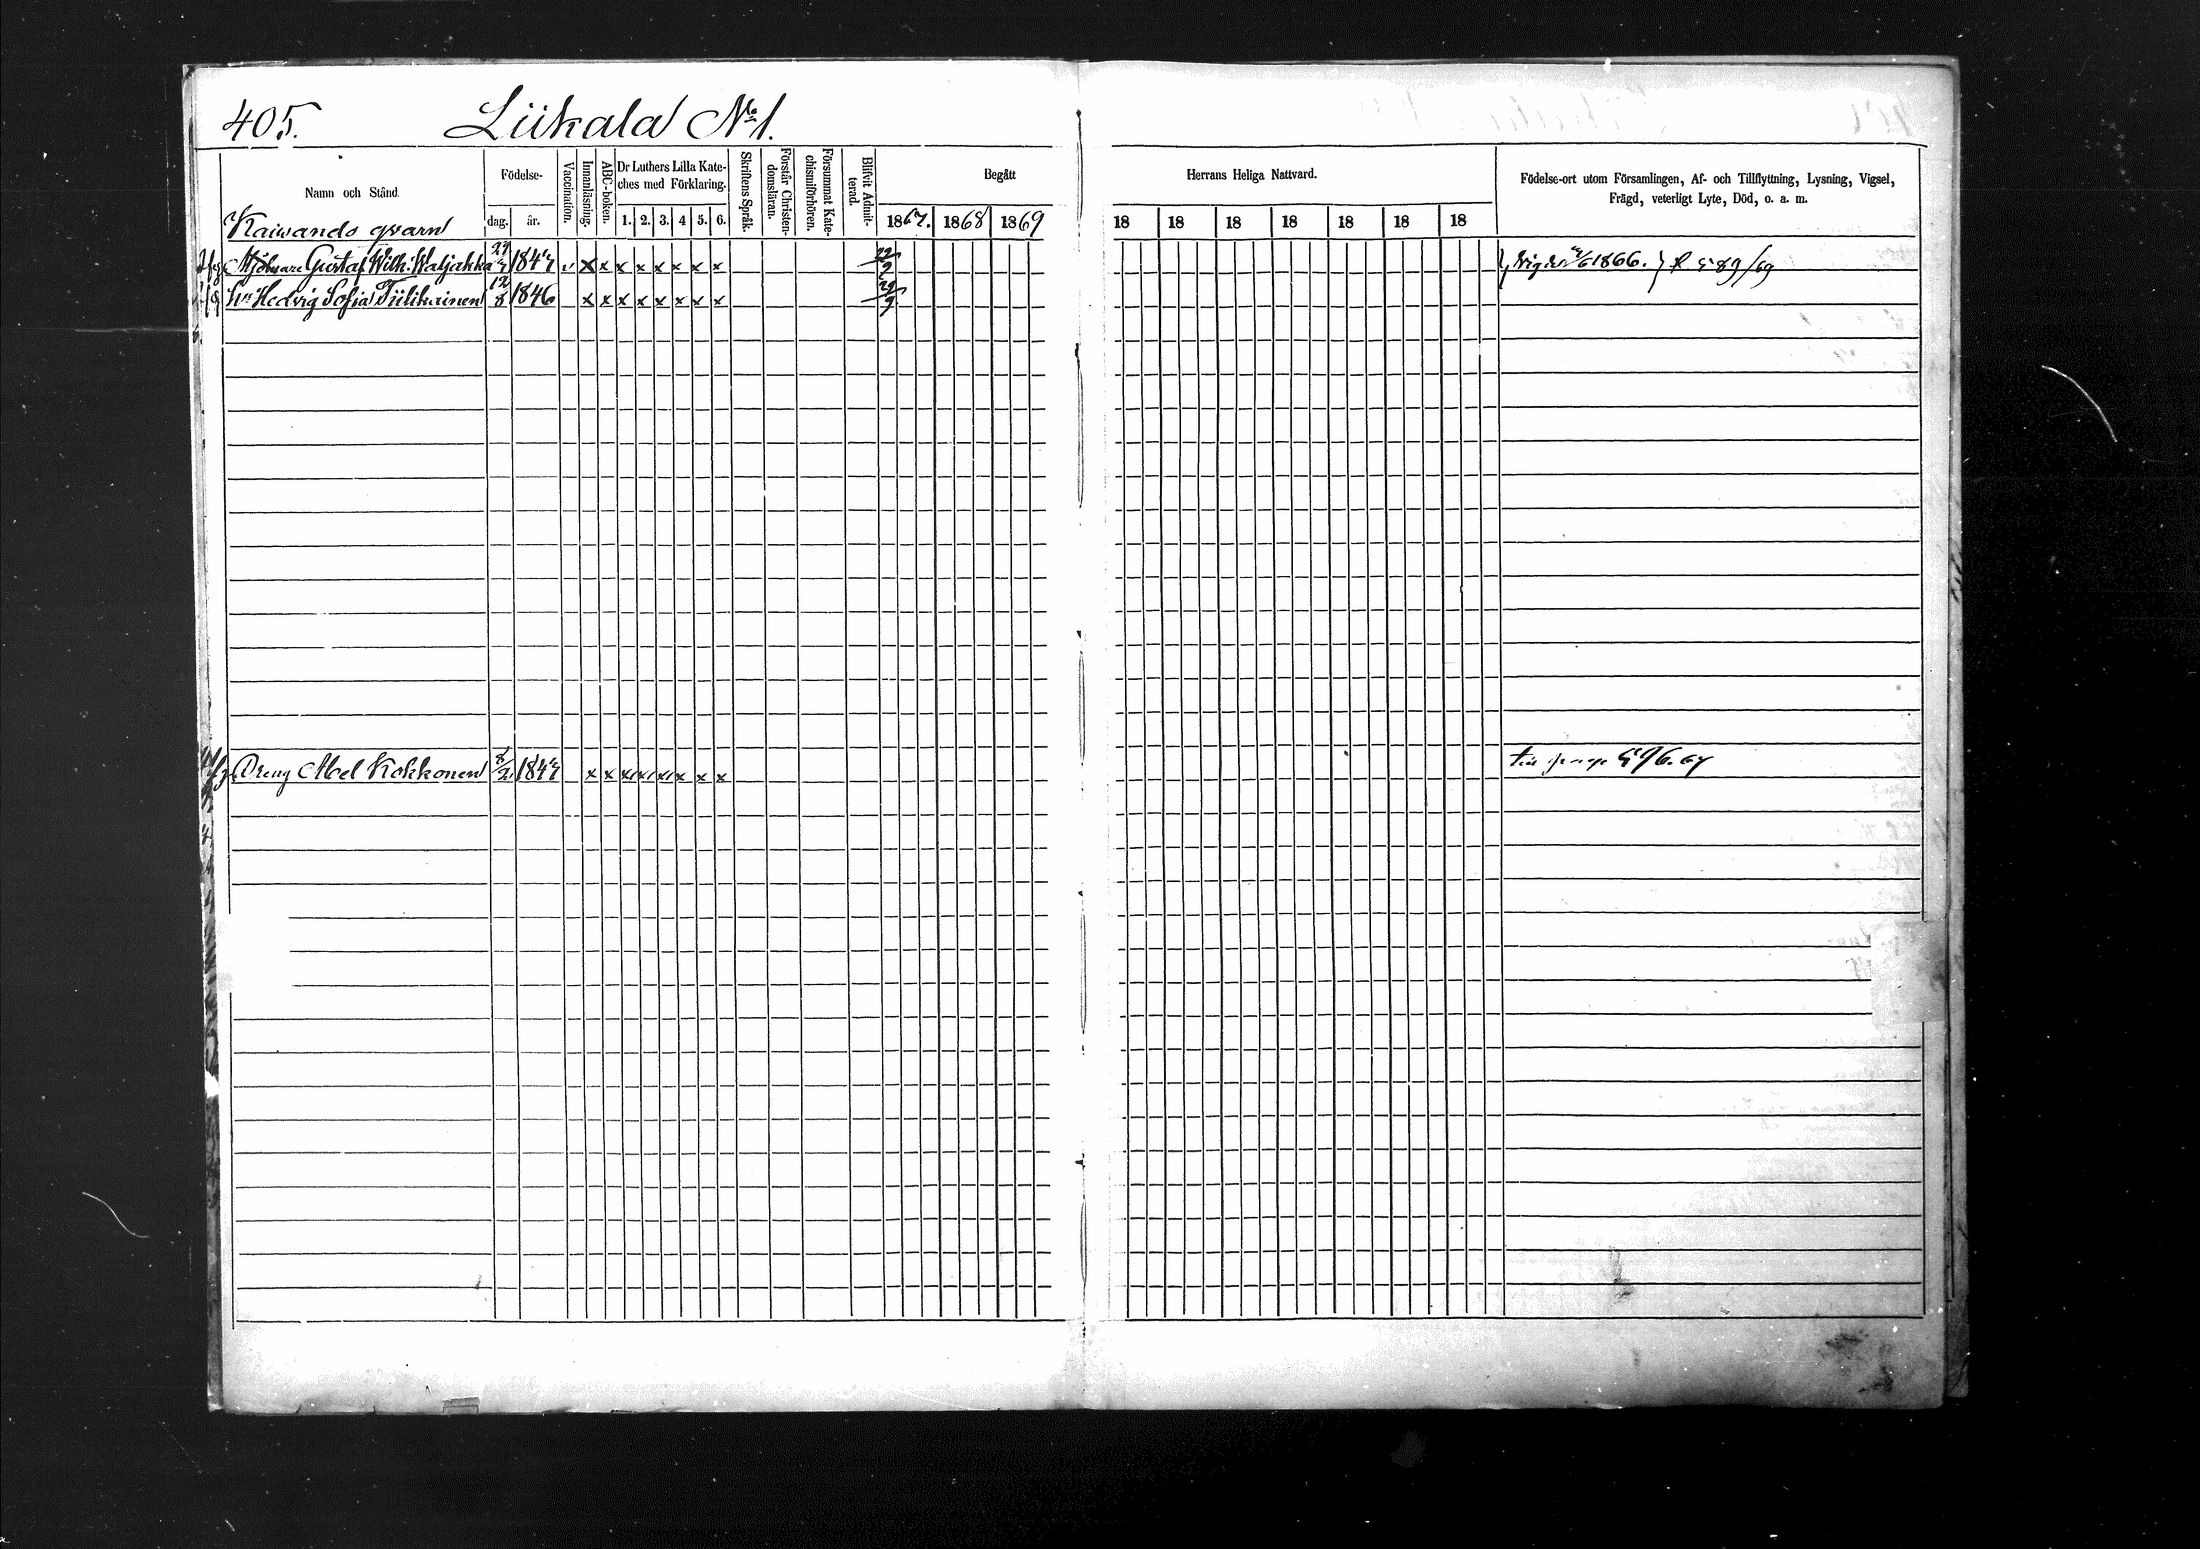 405. Liikala No 1.
Namn och Stånd.
Födelse-
dag. år.
Vaccination.
Innanläsning.
ABC-boken.
Dr Luthers Lilla Kate-
ches med Förklaring.
1. 2. 3. 4 5. 6.
Skriftens Språk.
Förstår Christen-
domsläran.
Försummat Kate-
chismiförhören.
Blifvit Admit-
terad.
Begått
1867. 1868 1869
Herrans Heliga Nattvard.
18 18 18 18 18 18 18
Födelse-ort utom Församlingen, Af- och Tillflyttning, Lysning, Vigsel,
Frägd, veterligt Lyte, Död, o. a. m.
Kaivando qvarn
Mjölnare Gustaf Wilh. Waljakka 1847 v x x x x x x x x 22/9 1866. 589/69
Hu Hedvig Sofia Tiilikainen 12/8 1846 x x x x x x x x 29/9
Dreng Abel Kokkonen 8/2 1847 x x x x x x x x 596. 67